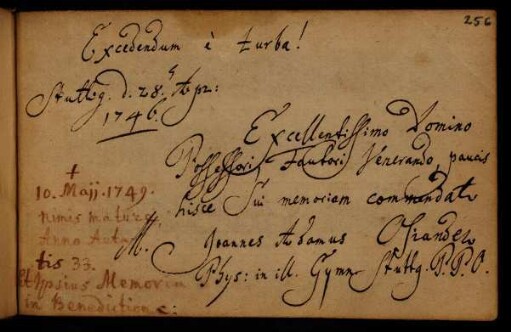 256
Excedendum è turba!
Stuttg. d. 28. Apr:
1746.
Excellentissimo Domino
Possessori, Fautori Venerando, paucis
hisce Sui memoriam commendat
M. Joannes Adamus Osiander
Phys: in ill. Gymn Stuttg. P. P. O.
†
10. Maji. 1749.
nimis mature,
Anno Aeta
tis 33.
et Ipsius Memoria
in Benedictione: